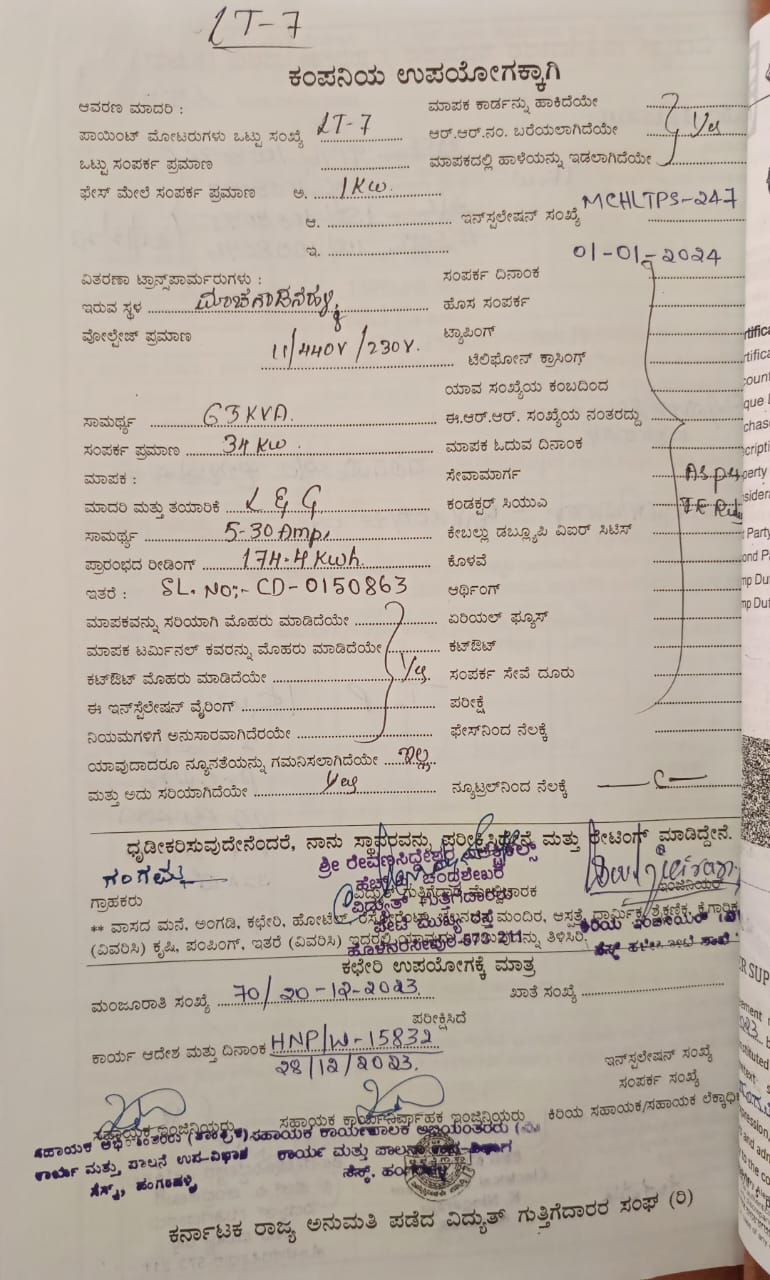 LT-7
ಕಂಪನಿಯ ಉಪಯೋಗಕ್ಕಾಗಿ
ಆವರಣ ಮಾದರಿ :
ಮಾಪಕ ಕಾರ್ಡನ್ನು ಹಾಕಿದೆಯೇ
ಪಾಯಿಂಟ್ ಮೋಟರುಗಳು ಒಟ್ಟು ಸಂಖ್ಯೆ LT-7
ಆರ್.ಆರ್.ನಂ. ಬರೆಯಲಾಗಿದೆಯೇ Yes
ಒಟ್ಟು ಸಂಪರ್ಕ ಪ್ರಮಾಣ
ಮಾಪಕದಲ್ಲಿ ಹಾಳೆಯನ್ನು ಇಡಲಾಗಿದೆಯೇ
ಫೇಸ್ ಮೇಲೆ ಸಂಪರ್ಕ ಪ್ರಮಾಣ ಅ. 1KW.
ಆ.
ಇನ್‌ಸ್ಟಲೇಷನ್ ಸಂಖ್ಯೆ MCHLTPS-247
ಇ.
ವಿತರಣಾ ಟ್ರಾನ್ಸ್‌ಪಾರ್ಮರುಗಳು :
ಸಂಪರ್ಕ ದಿನಾಂಕ 01-01-2024
ಇರುವ ಸ್ಥಳ
ಹೊಸ ಸಂಪರ್ಕ
ವೋಲ್ಟೇಜ್ ಪ್ರಮಾಣ 11/440V/230V.
ಟ್ಯಾಪಿಂಗ್
ಟೆಲಿಫೋನ್ ಕ್ರಾಸಿಂಗ್
ಯಾವ ಸಂಖ್ಯೆಯ ಕಂಬದಿಂದ
ಸಾಮರ್ಥ್ಯ 63KVA.
ಈ.ಆರ್.ಆರ್. ಸಂಖ್ಯೆಯ ನಂತರದ್ದು
ಸಂಪರ್ಕ ಪ್ರಮಾಣ 34KW.
ಮಾಪಕ ಓದುವ ದಿನಾಂಕ
ಮಾಪಕ :
ಸೇವಾಮಾರ್ಗ
ಮಾದರಿ ಮತ್ತು ತಯಾರಿಕೆ L & G
ಕಂಡಕ್ಟರ್ ಸಿಯುವಿ
ಸಾಮರ್ಥ್ಯ 5-30Amps
ಕೇಬಲ್ಲು ಡಬ್ಲ್ಯೂಪಿ ವಿಐರ್ ಸಿಟಿಸ್
ಪ್ರಾರಂಭದ ರೀಡಿಂಗ್ 174.4 Kwh.
ಕೊಳವೆ
ಇತರೆ : SL. NO:- CD-0150863
ಆರ್ಥಿಂಗ್
ಮಾಪಕವನ್ನು ಸರಿಯಾಗಿ ಮೊಹರು ಮಾಡಿದೆಯೇ
ಏರಿಯಲ್ ಫ್ಯೂಸ್
ಮಾಪಕ ಟರ್ಮಿನಲ್ ಕವರನ್ನು ಮೊಹರು ಮಾಡಿದೆಯೇ
ಕಟ್‌ಔಟ್
ಕಟ್‌ಔಟ್ ಮೊಹರು ಮಾಡಿದೆಯೇ Yes.
ಸಂಪರ್ಕ ಸೇವೆ ದೂರು
ಈ ಇನ್‌ಸ್ಟೆಲೇಷನ್ ವೈರಿಂಗ್
ಪರೀಕ್ಷೆ
ನಿಯಮಗಳಿಗೆ ಅನುಸಾರವಾಗಿದೆರಯೇ
ಫೇಸ್‌ನಿಂದ ನೆಲಕ್ಕೆ
ಯಾವುದಾದರೂ ನ್ಯೂನತೆಯನ್ನು ಗಮನಿಸಲಾಗಿದೆಯೇ ಇಲ್ಲ
ಮತ್ತು ಅದು ಸರಿಯಾಗಿದೆಯೇ Yes
ನ್ಯೂಟ್ರಲ್‌ನಿಂದ ನೆಲಕ್ಕೆ
ಧೃಡೀಕರಿಸುವುದೇನೆಂದರೆ, ನಾನು ಸ್ಥಾವರವನ್ನು ಪರೀಕ್ಷಿಸಿದ್ದೇನೆ ಮತ್ತು ರೇಟಿಂಗ್ ಮಾಡಿದ್ದೇನೆ.
ಗಂಗಮ್ಮ
ಗ್ರಾಹಕರು
** ವಾಸದ ಮನೆ, ಅಂಗಡಿ, ಕಛೇರಿ, ಹೋಟೆಲ್, ಮಂದಿರ, ಆಸ್ಪತ್ರೆ,
(ವಿವರಿಸಿ) ಕೃಷಿ, ಪಂಪಿಂಗ್, ಇತರೆ (ವಿವರಿಸಿ) ತಿಳಿಸಿರಿ.
ಕಛೇರಿ ಉಪಯೋಗಕ್ಕೆ ಮಾತ್ರ
ಮಂಜೂರಾತಿ ಸಂಖ್ಯೆ 70/20-12-2023
ಖಾತೆ ಸಂಖ್ಯೆ
ಪರೀಕ್ಷಿಸಿದೆ
ಕಾರ್ಯ ಆದೇಶ ಮತ್ತು ದಿನಾಂಕ HNP/W-15832
28/12/2023.
ಇನ್‌ಸ್ಟಲೇಷನ್ ಸಂಖ್ಯೆ
ಸಂಪರ್ಕ ಸಂಖ್ಯೆ
ಸಹಾಯಕ ಇಂಜಿನಿಯರು
ಸಹಾಯಕ ಕಾರ್ಯನಿರ್ವಾಹಕ ಇಂಜಿನಿಯರು
ಕಿರಿಯ ಸಹಾಯಕ/ಸಹಾಯಕ
ಕಾರ್ಯ ಮತ್ತು ಪಾಲನೆ ಉಪ-ವಿಭಾಗ
ಕರ್ನಾಟಕ ರಾಜ್ಯ ಅನುಮತಿ ಪಡೆದ ವಿದ್ಯುತ್ ಗುತ್ತಿಗೆದಾರರ ಸಂಘ (ರಿ)